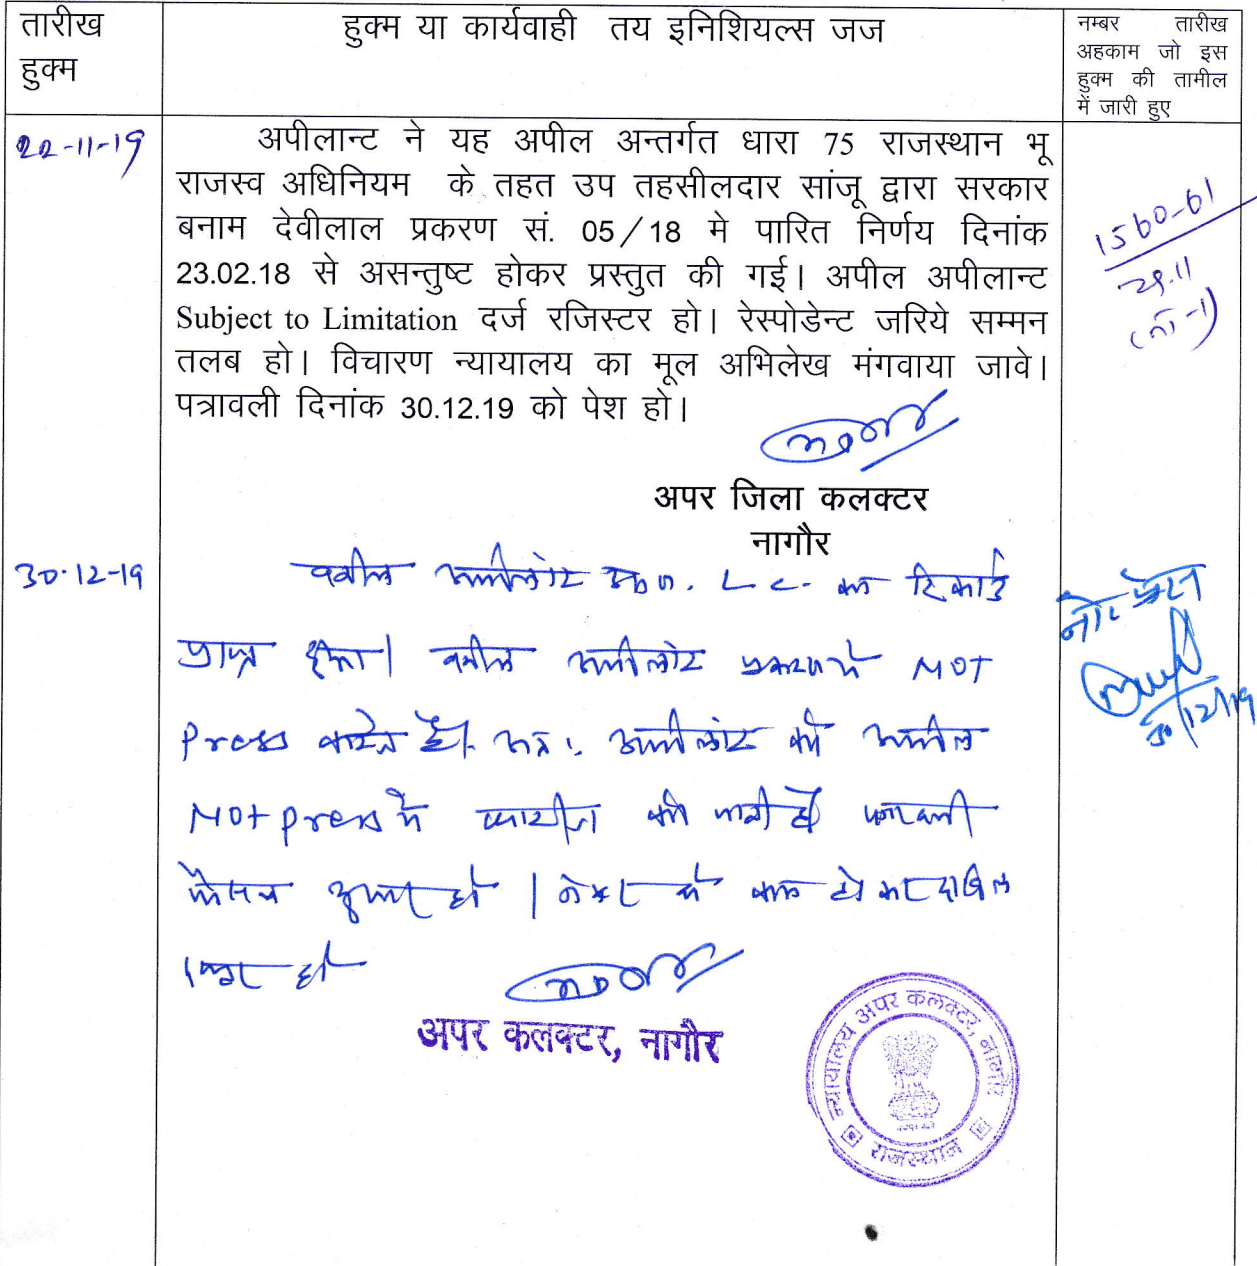 तारीख
हुक्म
हुक्म या कार्यवाही तय इनिशियल्स जज
नम्बर तारीख
अहकाम जो इस
हुक्म की तामील
में जारी हुए
22-11-19
अपीलान्ट ने यह अपील अन्तर्गत धारा 75 राजस्थान भू
राजस्व अधिनियम के तहत उप तहसीलदार सांजू द्वारा सरकार
बनाम देवीलाल प्रकरण सं. 05/18 मे पारित निर्णय दिनांक
23.02.18 से असन्तुष्ट होकर प्रस्तुत की गई। अपील अपीलान्ट
Subject to Limitation दर्ज रजिस्टर हो। रेस्पोडेन्ट जरिये सम्मन
तलब हो। विचारण न्यायालय का मूल अभिलेख मंगवाया जावे।
पत्रावली दिनांक 30.12.19 को पेश हो।
1560-61
29.11
अपर जिला कलक्टर
नागौर
30-12-19
वकील अपीलांट उप. L.C. का रिकार्ड
प्राप्त हुआ। वकील अपीलांट प्रकरण में NOT
Press करते है। अतः अपीलांट की अपील
NOT press में खारीज की जाती है।
फैसल शुमार हो। नम्बर से कम हो कर दाखिल
दफ्तर हो
नोट प्रेस
30/12/19
अपर कलक्टर, नागौर
न्यायालय अपर कलक्टर, नागौर
राजस्थान